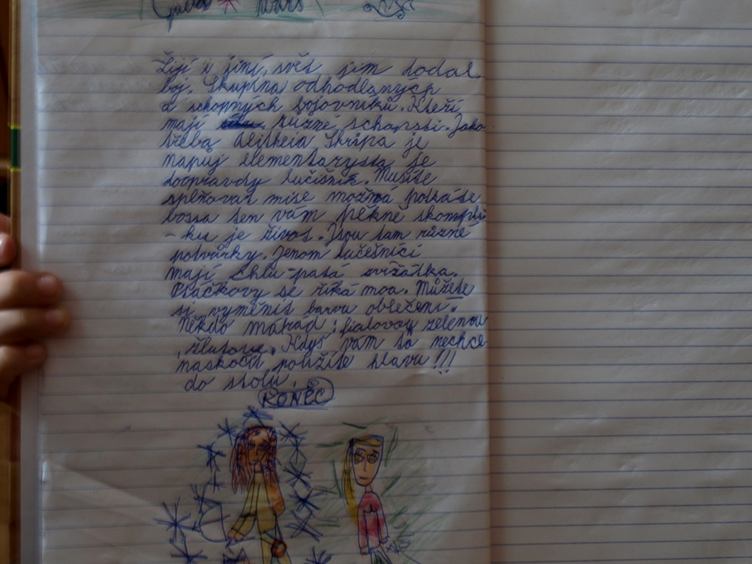 Guild Wars
Žijí v jiní, svět jim dodal
boj. Skupina odhodlaných
a schopných bojovníků. Kteří
mají různé schopsti. Jako
třeba Skřipa je
napuj elementarysta je
doopravdy lučišník. Musíte
splňovat mise možná potkáte
bossa ten vám pěkně skompli-
-ku je život. Jsou tam různé
potvůrky. Jenom lučešníci
mají chlu-patá zvířátka.
Ptáčkovy se říká moa. Můžete
si vyměnit barvu oblečení.
Někdo má řad: fialovou zelenou
, žlutou. Když vám to nechce
naskočit použíte hlavu!!!
do stolu.
KONEC